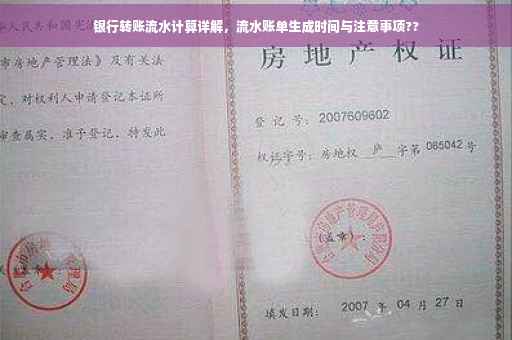 银行转账流水计算详解，流水账单生成时间与注意事项??
人民共和国宪
市房地产管理法》及有关法
定，对权利人申请登记本证所
审查属实，准予登记，特发此
房地产权证
登 记 号：2007609602
权证字号：房地权 庐 字第 085042 号
(盖章)：
填发日期： 2007 年 04 月 27 日